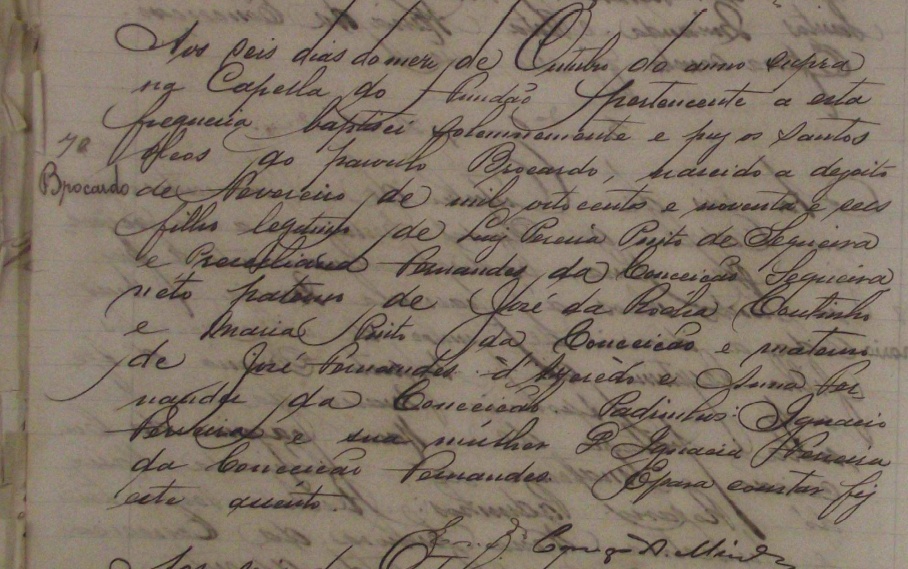 Aos seis dias do mez de Outubro do anno supra
na Capella do Fundão pertencente a esta
freguesia baptisei solemnemente e puz os santos
70
oleos ao parvulo Brocardo, nascido a dezoito
Bpocardo
de Fevereiro de mil oitocentos e noventa e seis
filho legitimo de Luiz Pereira Pinto de Sequeira
e Fernandes da Conceição Sequeira
néto paterno de José da Rocha Coutinho
e Maria Pinto da Conceição e materno
de José Fernandes d'Azerêdo e Anna Fer-
nandes da Conceição. Padrinhos: Ignacio
Ferreira e sua mulher D. Ignacia Ferreira
da Conceição Fernandes. E para constar fiz
este quento.